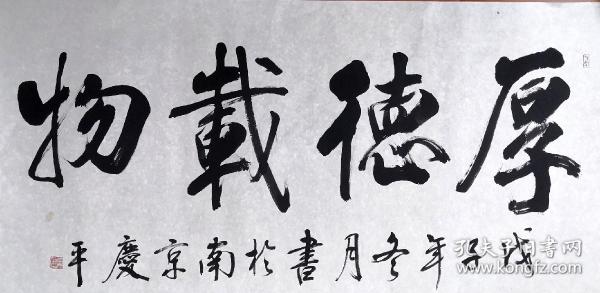 厚德載物
戊子年冬月書於南京慶平
孔夫子旧书网
www.kongfz.com